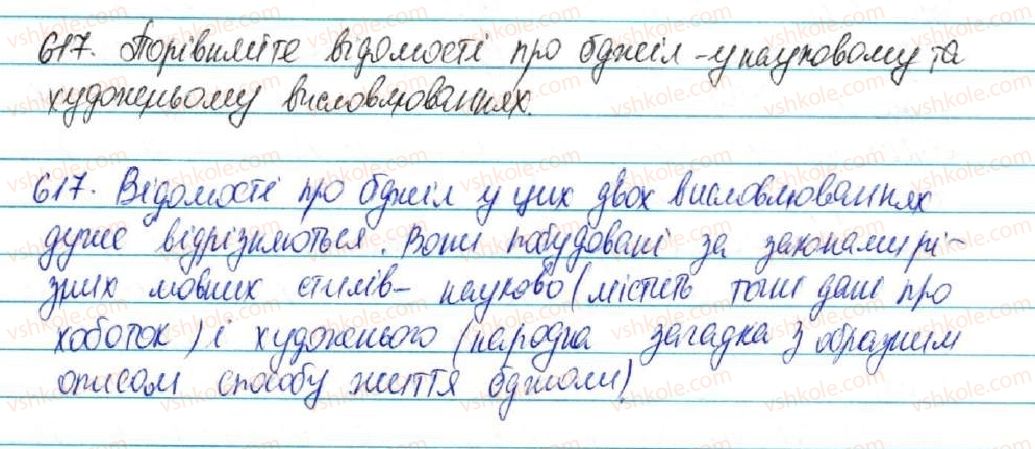 617. Порівняйте відомості про бджіл - у науковому та
художньому висловлюваннях.
617. Відомості про бджіл у цих двох висловлюваннях
дуже відрізняються. Вони побудовані за законами рі-
зних мовних стилів - науково (містить точні дані про
хоботок) і художнього (народна загадка з образним
описом способу життя бджоли)